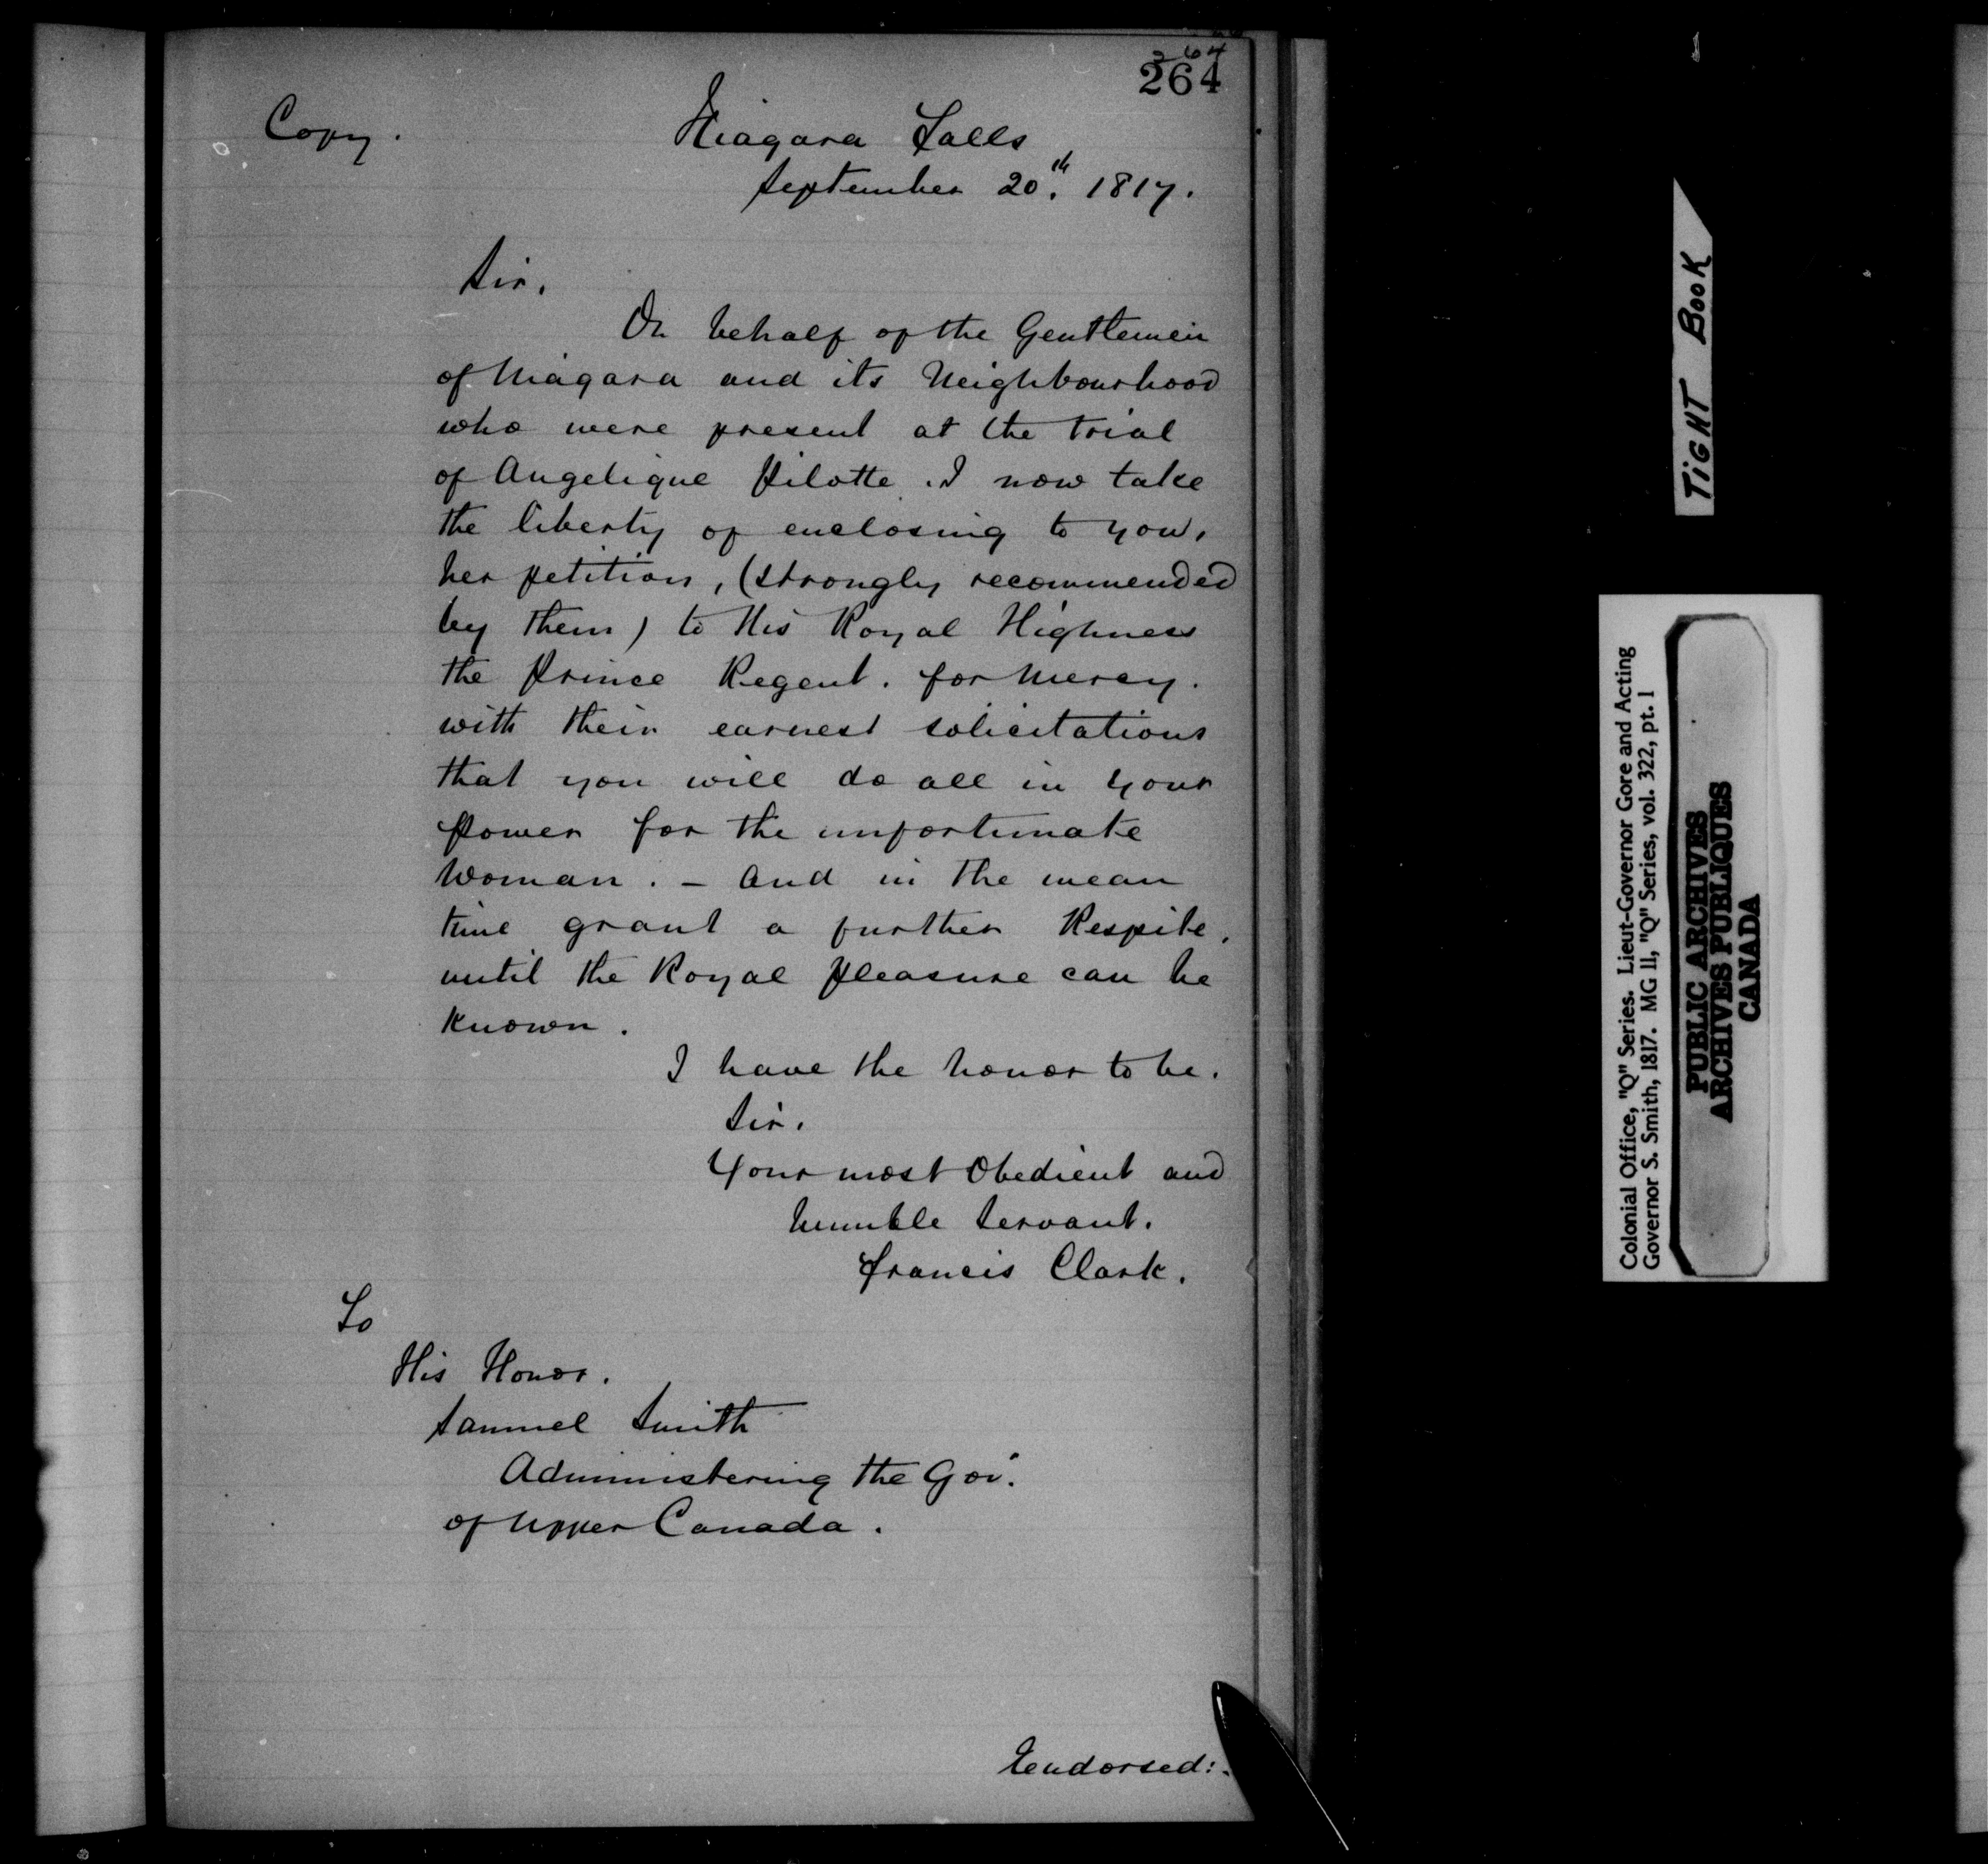 264
264
Copy.
Niagara Falls
September 20.th 1817.
Sir.
On behalf of the Gentlemen
of Niagara and its Neighbourhood
who were present at the trial
of Angelique Pilotte. I now take
the liberty of enclosing to you,
her petition, (strongly recommended
by them) to His Royal Highness
the Prince Regent. for Mercy.
with their earnest solicitations
that you will do all in your
power for the unfortunate
Woman. - And in the mean
time grant a further Respite,
until the Royal pleasure can be
known.
I have the honor to be.
Sir.
Your most Obedient and
humble Servant.
Francis Clark.
To
His Honor.
Samuel Smith
Administering the Gov.t
of Upper Canada.
Endorsed:.
TIGHT BOOK
Colonial Office, "Q" Series. Lieut-Governor Gore and Acting
Governor S. Smith, 1817. MG 11, "Q" Series, vol. 322, pt. 1
PUBLIC ARCHIVES
ARCHIVES PUBLIQUES
CANADA